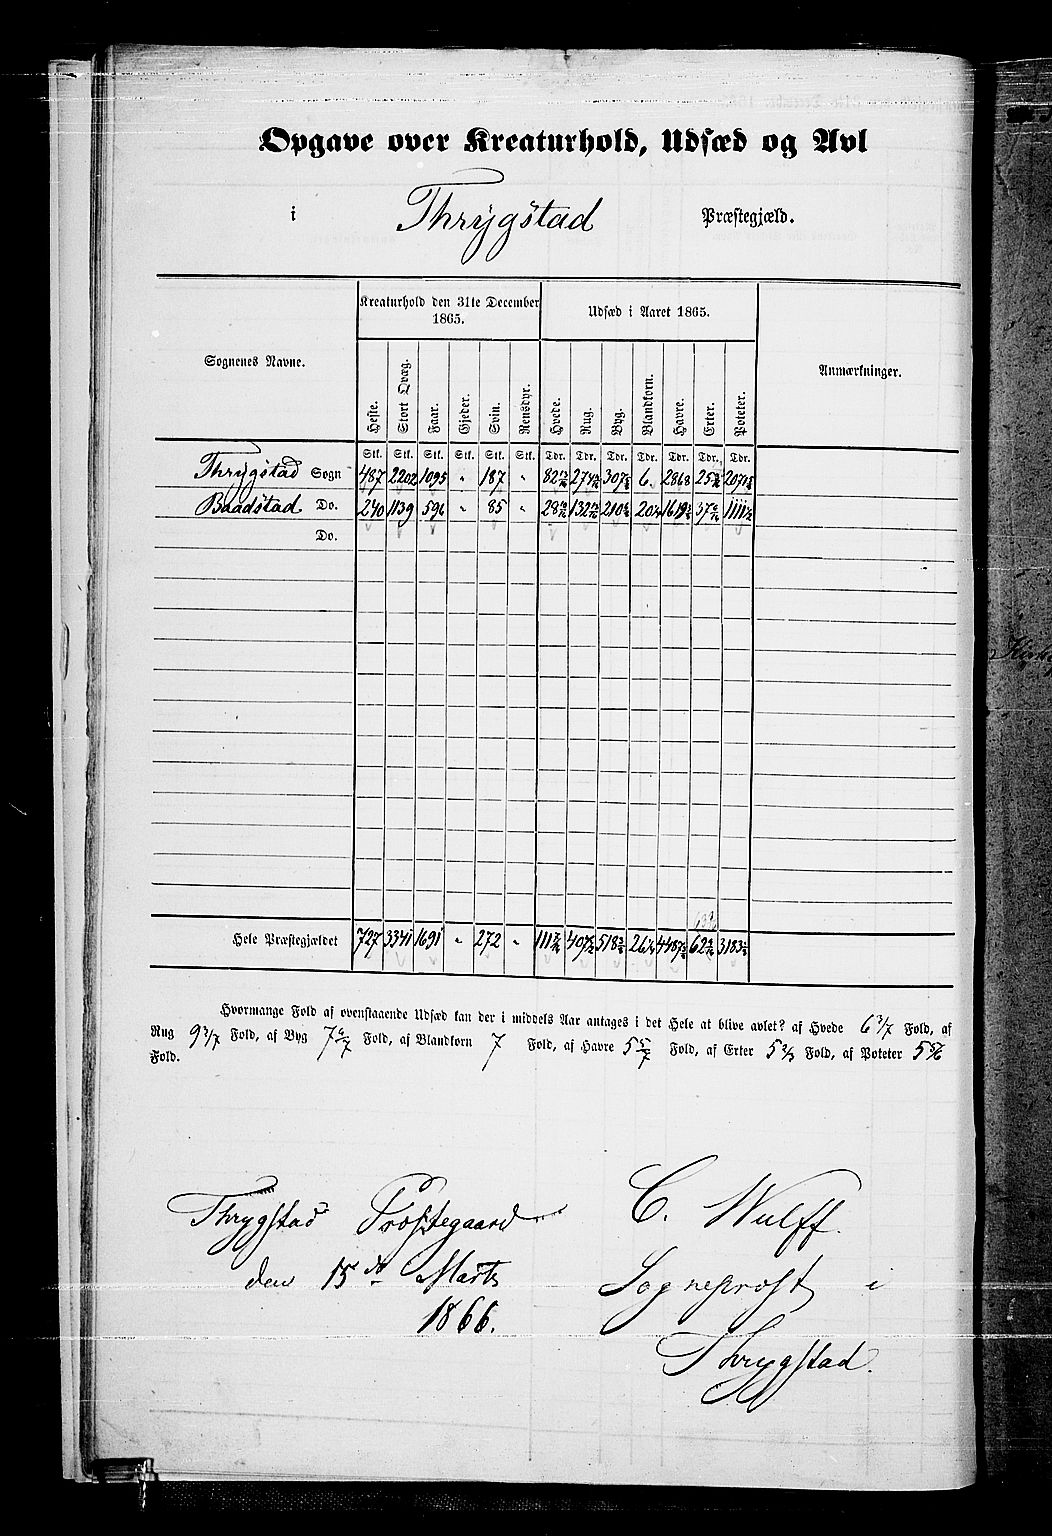 Opgave over Kreaturhold, Udsæd og Avl
i Thrygstad Præstegjæld.
Sognenes Navne. Kreaturhold den 31te December 1865. Udsæd i Aaret 1865. Anmærkninger.
Heste. Stort Qvæg. Faar. Gjeder. Svin. Rensdyr. Hvede. Rug. Byg. Blandkorn. Havre. Erter. Poteter.
Stk. Stk. Stk. Stk. Stk. Stk. Tdr. Tdr. Tdr. Tdr. Tdr. Tdr. Tdr.
Thrygstad Sogn 487 2202 1095 " 187 " 82 274 307 6 2868 25 2071
Baadstad Do. 240 1139 596 " 85 " 28 132 210 20 1619 37 1111
Do.
Hele Præstegjældet 727 3341 1691 " 272 " 111 407 518 26 4487 62 3183
Hvormange Fold af ovenstaaende Udsæd kan der i middels Aar antages i det Hele at blive avlet? af Hvede 6 3/7 Fold, af
Rug 9 3/7 Fold, af Byg 7 6/7 Fold, af Blandkorn 7 Fold, af Havre 5 5/7 Fold, af Erter 5 2/3 Fold, af Poteter 5 5/6
Fold.
Thrygstad Præstegaard
den 15de Marts
1866.
C. Wulff.
Sognepræst i
Thrygstad.